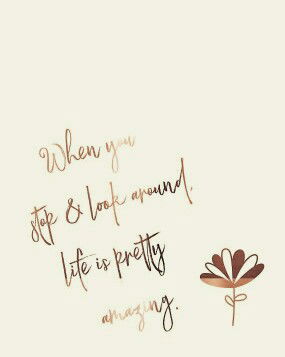 When you
stop & look around,
life is pretty
amazing.